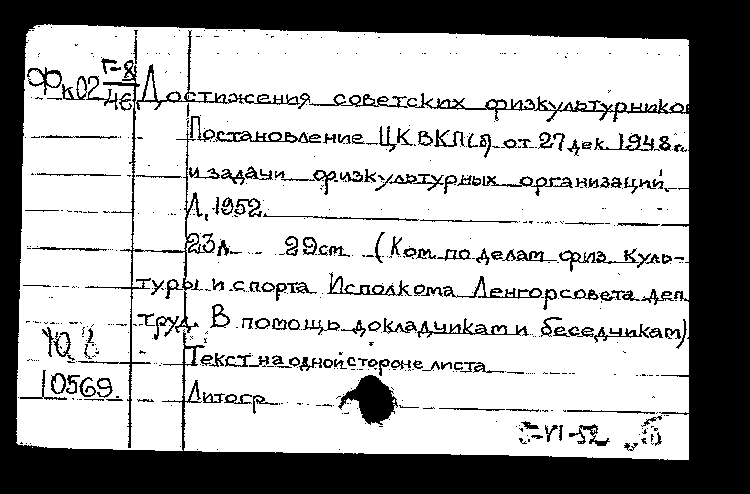 Г-8
ФК02 46 Достижения советских физкультурников
Постановление ЦК ВКП(б) от 27 дек. 1948 г.
и задачи физкультурных организаций.
Л, 1952.
23л 29см (Ком. по делам физ. куль-
туры и спорта Исполкома Ленгорсовета деп.
труд. В помощь докладчикам и беседчикам)
Текст на одной стороне листа.
10569. Литогр.
5-VI-52